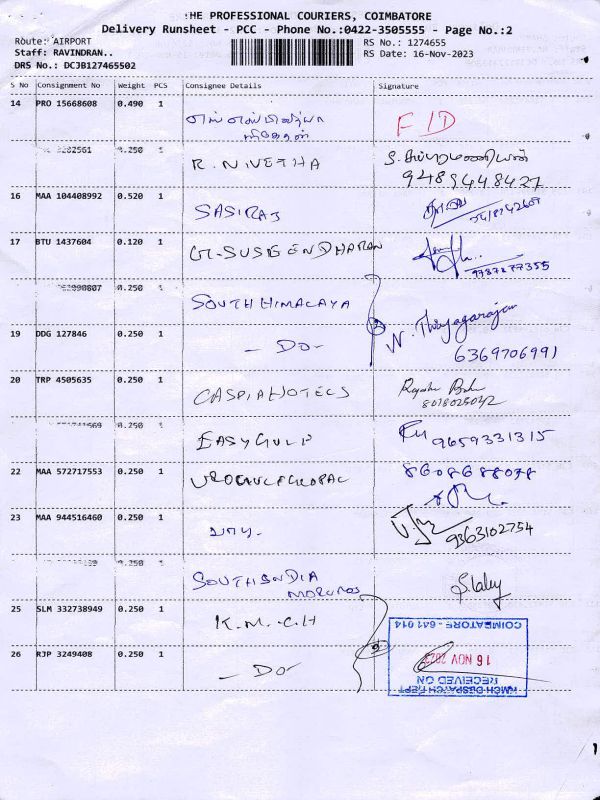 THE PROFESSIONAL COURIERS, COIMBATORE
Delivery Runsheet - PCC - Phone No.:0422-3505555 - Page No.:2
Route: AIRPORT RS No.: 1274655
Staff: RAVINDRAN.. RS Date: 16-Nov-2023
DRS No.: DCJB127465502
S No Consignment No Weight PCS Consignee Details Signature
14 PRO 15668608 0.490 1 FID
0.250 1 R. NIVETHA S. சுப்ரமணியன்
9489448427
16 MAA 104408992 0.520 1 SASIRAJ
17 BTU 1437604 0.120 1 G. SUSEENDHARAN
9787277355
0.250 1 SOUTH HIMALAYA N. Thiyagarajan
19 DDG 127846 0.250 1 - DO - 6369706991
20 TRP 4505635 0.250 1 CASPIA HOTELS
8018025042
0.250 1 EASY GULF 9659331315
22 MAA 572717553 0.250 1 8608688078
23 MAA 944516460 0.250 1 பாபு. 9363102754
0.250 1 SOUTH INDIA
25 SLM 332738949 0.250 1 K.M.C.H
26 RJP 3249408 0.250 1 - DO -
KMCH DESPATCH DEPT
RECEIVED ON
16 NOV 2023
COIMBATORE - 641 014